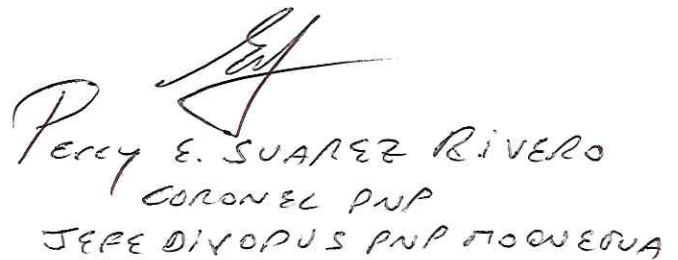 Percy E. SUAREZ RIVERO
CORONEL PNP
JEFE DIVOPUS PNP MOQUEGUA